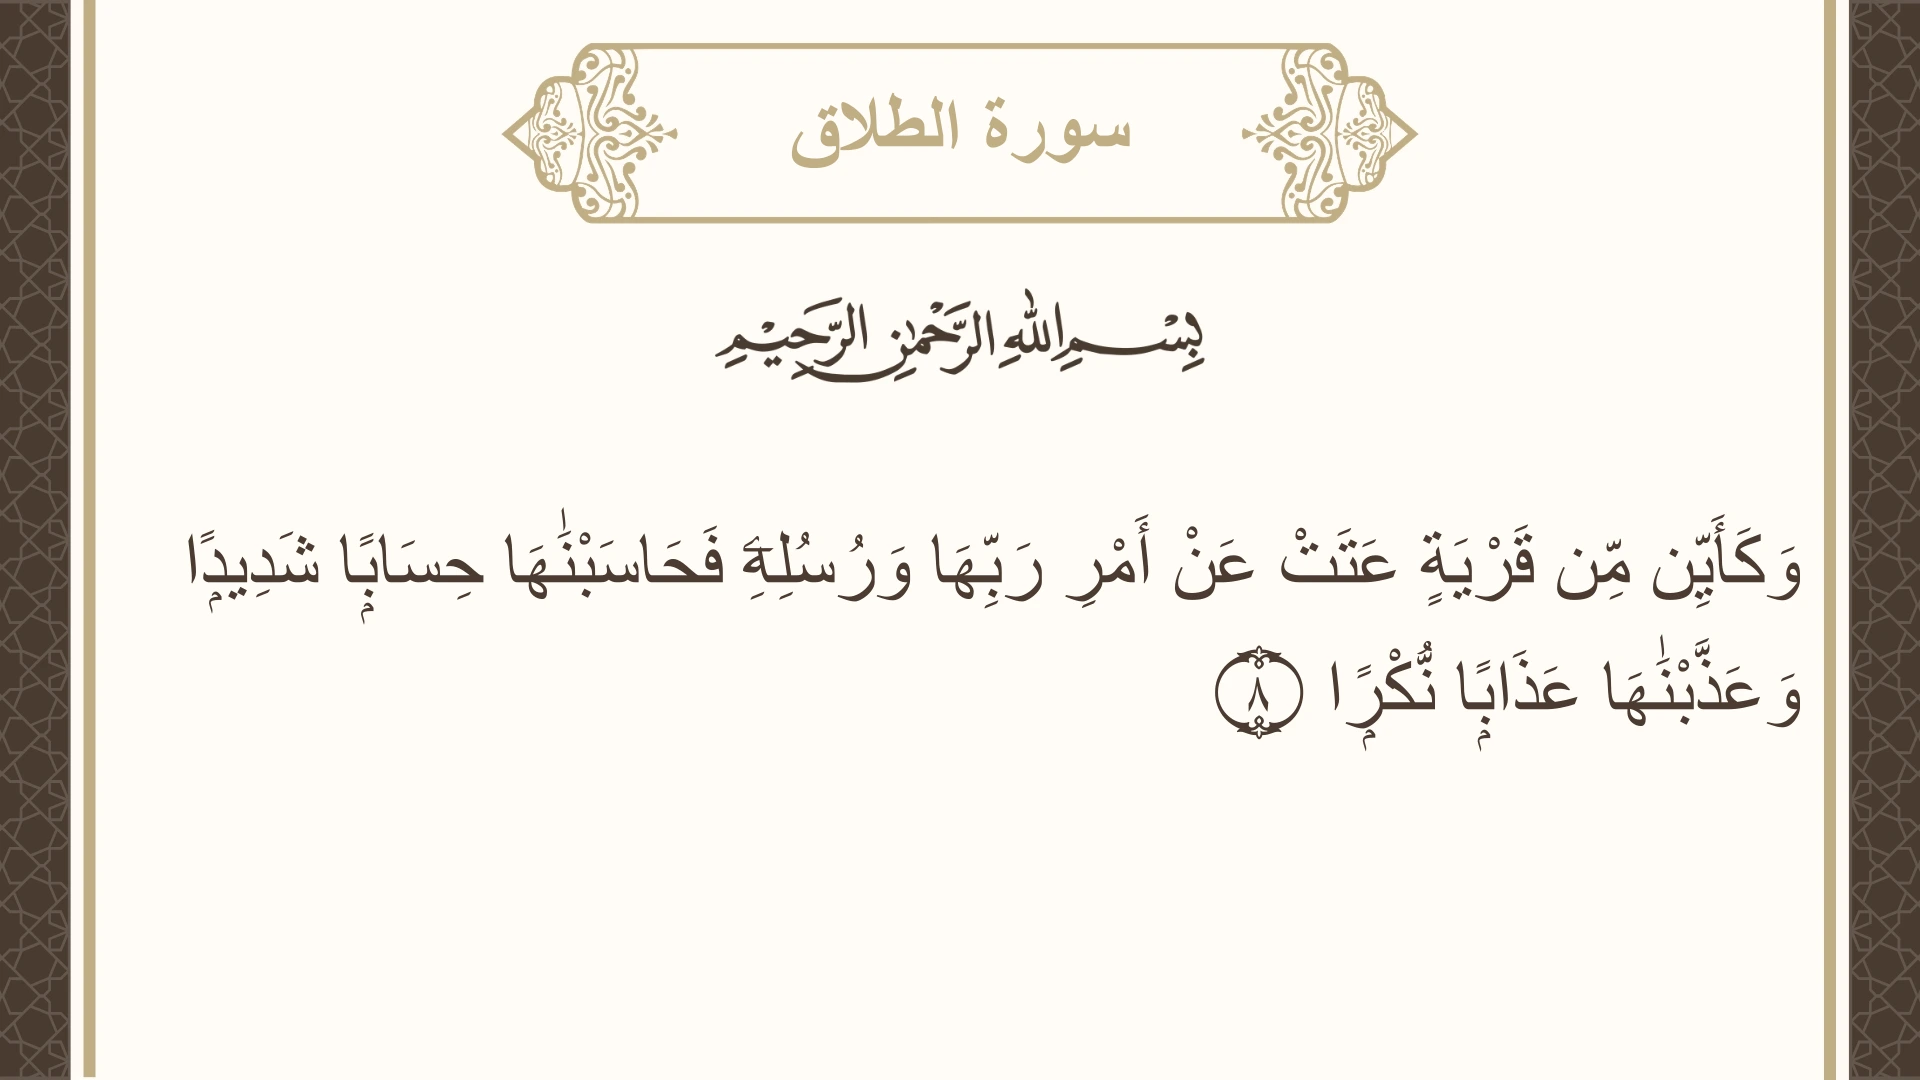 سورة الطلاق
بِسْمِ اللهِ الرَّحْمٰنِ الرَّحِيْمِ
وَكَأَيِّن مِّن قَرْيَةٍ عَتَتْ عَنْ أَمْرِ رَبِّهَا وَرُسُلِهِۦ فَحَاسَبْنَٰهَا حِسَابًۭا شَدِيدًۭا
وَعَذَّبْنَٰهَا عَذَابًۭا نُّكْرًۭا ۝٨